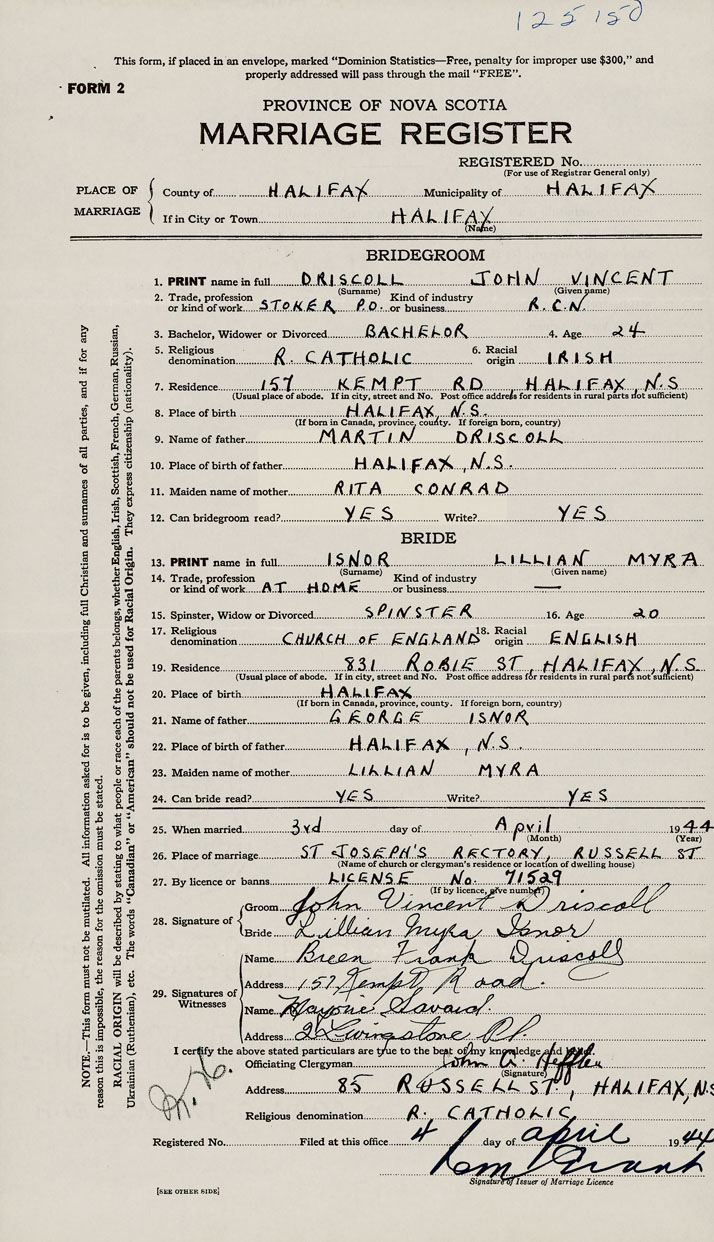 125150
This form, if placed in an envelope, marked “Dominion Statistics—Free, penalty for improper use $300,” and
properly addressed will pass through the mail “FREE”.
FORM 2
PROVINCE OF NOVA SCOTIA
MARRIAGE REGISTER
REGISTERED No.
(For use of Registrar General only)
PLACE OF MARRIAGE
County of HALIFAX Municipality of HALIFAX
If in City or Town HALIFAX
(Name)
BRIDEGROOM
1. PRINT name in full DRISCOLL JOHN VINCENT
(Surname) (Given name)
2. Trade, profession or kind of work STOKER P.O. Kind of industry or business R.C.N.
3. Bachelor, Widower or Divorced BACHELOR 4. Age 24
5. Religious denomination R. CATHOLIC 6. Racial origin IRISH
7. Residence 157 KEMPT RD, HALIFAX, N.S
(Usual place of abode. If in city, street and No. Post office address for residents in rural parts not sufficient)
8. Place of birth HALIFAX, N.S.
(If born in Canada, province, county. If foreign born, country)
9. Name of father MARTIN DRISCOLL
10. Place of birth of father HALIFAX, N.S.
11. Maiden name of mother RITA CONRAD
12. Can bridegroom read? YES Write? YES
BRIDE
13. PRINT name in full ISNOR LILLIAN MYRA
(Surname) (Given name)
14. Trade, profession or kind of work AT HOME Kind of industry or business —
15. Spinster, Widow or Divorced SPINSTER 16. Age 20
17. Religious denomination CHURCH OF ENGLAND 18. Racial origin ENGLISH
19. Residence 831 ROBIE ST, HALIFAX, N.S
(Usual place of abode. If in city, street and No. Post office address for residents in rural parts not sufficient)
20. Place of birth HALIFAX
(If born in Canada, province, county. If foreign born, country)
21. Name of father GEORGE ISNOR
22. Place of birth of father HALIFAX, N.S.
23. Maiden name of mother LILLIAN MYRA
24. Can bride read? YES Write? YES
25. When married 3rd day of April 1944
(Month) (Year)
26. Place of marriage ST JOSEPH'S RECTORY, RUSSELL ST
(Name of church or clergyman's residence or location of dwelling house)
27. By licence or banns LICENSE No. 71529
(If by licence, give number)
28. Signature of
Groom John Vincent Driscoll
Bride Lillian Myra Isnor
29. Signatures of Witnesses
Name Breen Frank Driscoll
Address 157 Kempt Road.
Name Marjorie Savard.
Address 2 Livingstone Pl.
I certify the above stated particulars are true to the best of my knowledge and belief.
Officiating Clergyman John A. Heffler
(Signature)
Address 85 RUSSELL ST., HALIFAX, N.S
Religious denomination R. CATHOLIC
Registered No. Filed at this office 4 day of april 1944
Grant
Signature of Issuer of Marriage Licence
[SEE OTHER SIDE]
NOTE.—This form must not be mutilated. All information asked for is to be given, including full Christian and surnames of all parties, and if for any
reason this is impossible, the reason for the omission must be stated.
RACIAL ORIGIN will be described by stating to what people or race each of the parents belongs, whether English, Irish, Scottish, French, German, Russian,
Ukrainian (Ruthenian), etc. The words “Canadian” or “American” should not be used for Racial Origin. They express citizenship (nationality).